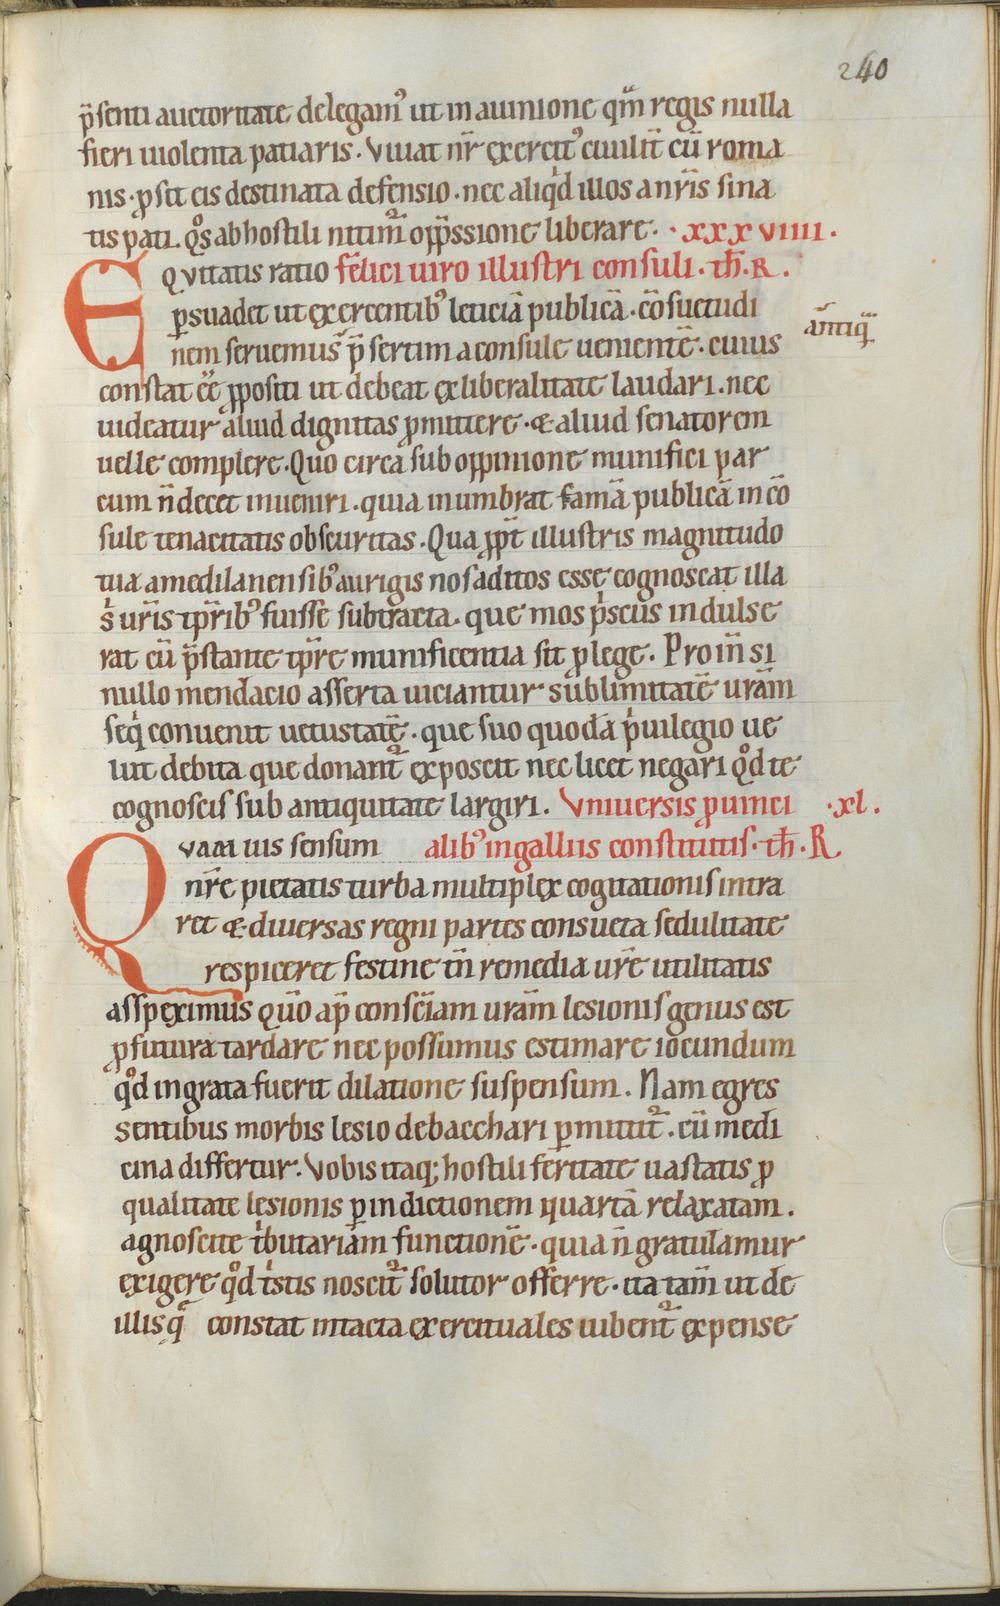 240
p̄senti auctoritate delegam᾽ ut in auinione qm̄ regis nulla
fieri uiolenta patiaris. Viuat nr̄ exercit᾽ ciuilit̄ cū roma
nis. ꝓsit eis destinata defensio. nec aliqͥd illos a nr̄is sina
tis pati. qͦs ab hostili nitim᷒ opp̄ssione liberare. .xxxviiii.
EQVitatis ratio felici uiro illustri consuli. th̄. R.
ꝑsuadet ut exercentib᾽ leticiā publicā. cōsuetudi
antiq̄
nem seruemus p̄sertim a consule uenientē. cuius
constat eē ꝓpositi ut debeat ex liberalitate laudari. nec
uideatur aliud dignitas ꝓmittere. & aliud senatorem
uelle complere. Quo circa sub oppinione munifici par
cum n̄ decet inueniri. quia inumbrat famā publicā in cō
sule tenacitatis obscuritas. Qua ꝓpt̄ illustris magnitudo
tua a medilanensib᾽ aurigis nos aditos esse cognoscat illa
sͥ ur̄is tp̄rib᾽ fuisse subtracta. que mos pͥscus indulse
rat cū p̄stante tp̄re munificentia sit ꝓ lege. Proin̄ si
nullo mendacio asserta uiciantur sublimitatē urām
seqͥ conuenit uetustatē. que suo quodā pͥuilegio ue
lut debita que donant᷒ exposcit nec licet negari qͦd te
cognoscis sub antiquitate largiri. Vniuersis ꝓuinci .xl.
QVAM uis sensum alib᾽ in galliis constitutis. th̄. R
nr̄e pietatis turba multiplex cogitationis intra
ret & diuersas regni partes consueta sedulitate
respiceret festine tn̄ remedia ur̄e utilitatis
asspeximus quō ap̄ consc̄iam urām lesionis genus est
ꝓfutura tardare nec possumus estimare iocundum
qͦd ingrata fuerit dilatione suspensum. Nam egres
sentibus morbis lesio debacchari ꝑmittit᷒. cū medi
cina differtur. Vobis itaq; hostili feritate uastatis ꝓ
qualitate lesionis ꝑ indictionem quartā relaxatam.
agnoscite tͥbutariam functionē. quia n̄ gratulamur
exigere qͦd tͥstis noscit᷒ solutor offerre. ita tam̄ ut de
illis q̄ constat intacta exercituales iubent᷒ expense